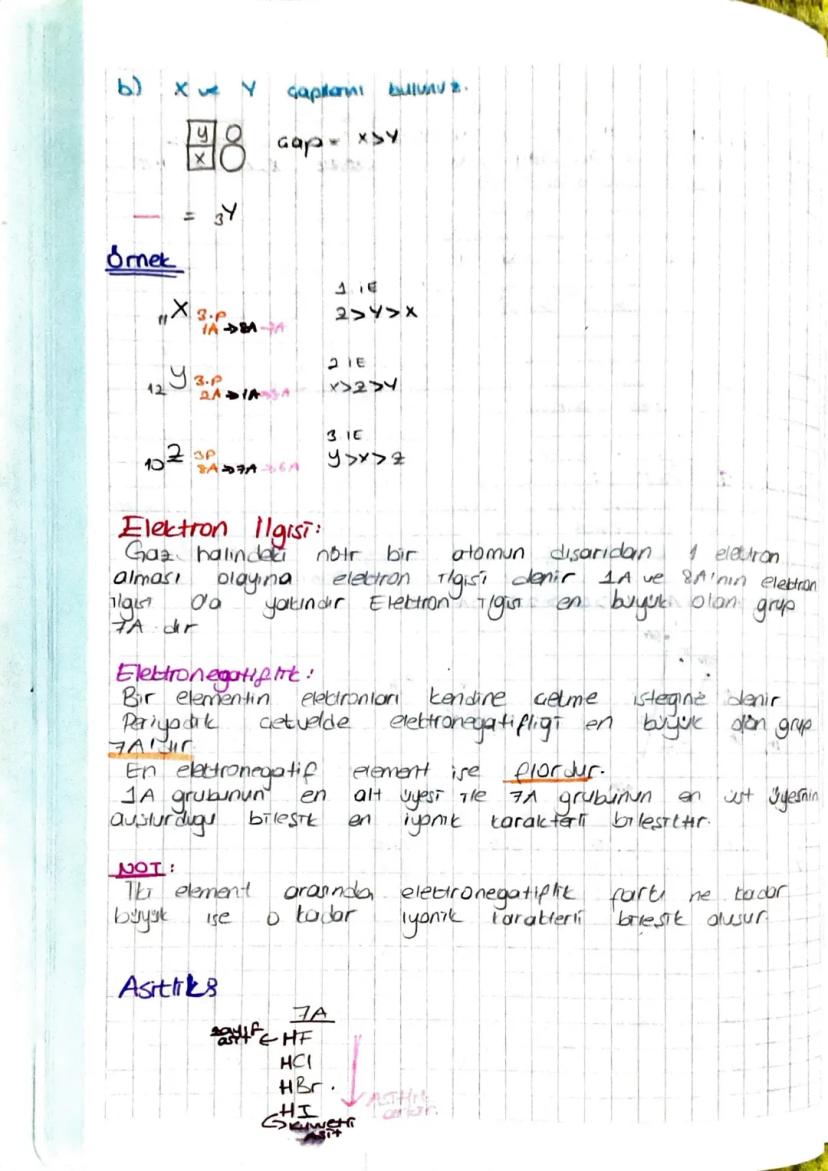 b) X ve Y çaplarını bulunuz.
y
x
çap = x>y
— = ₃Y
Örnek
₁₁X 3.P 1A→8A→7A
1 İE
2>Y>X
₁₂Y 3.P 2A→1A→8A
2 İE
X>2>Y
₁₀Z 3P 8A→7A→6A
3 İE
Y>X>Z
Elektron İlgisi:
Gaz halindeki nötr bir atomun dışarıdan 1 elektron
alması olayına elektron ilgisi denir 1A ve 8A'nın elektron
ilgisi 0'a yakındır Elektron ilgisi en büyük olan grup
7A dır
Elektronegatiflik:
Bir elementin elektronları kendine çekme isteğine denir
Periyodik cetvelde elektronegatifliği en büyük olan grup
7A'dır
En elektronegatif element ise flordur.
1A grubunun en alt üyesi ile 7A grubunun en üst üyesinin
oluşturduğu bileşik en iyonik karakterli bileşiktir.
NOT:
İki element arasında elektronegatiflik farkı ne kadar
büyük ise o kadar iyonik karakterli bileşik oluşur
Asitlik:
7A
zayıf asit ← HF
HCl
HBr.
HI
kuvvetli asit
Asitlik artar.